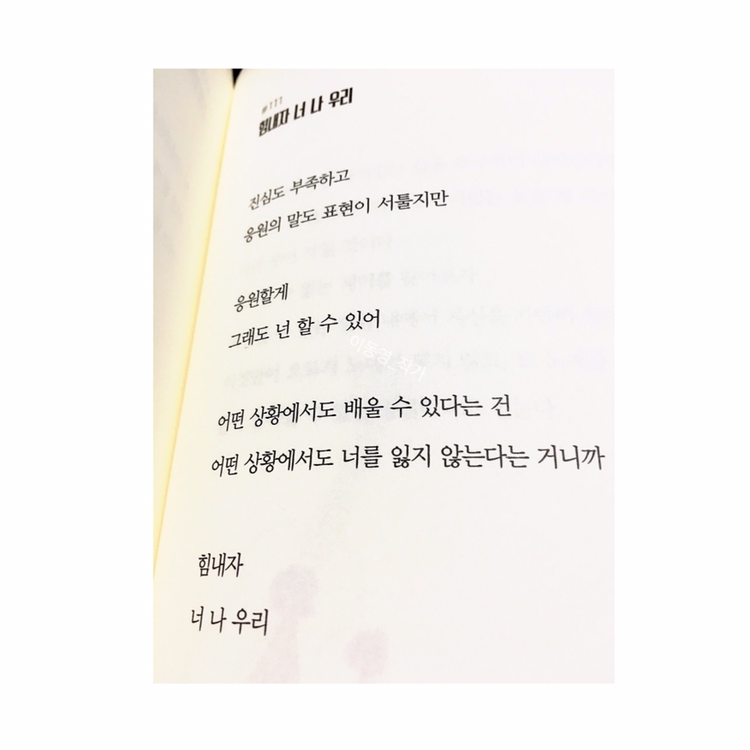 #111
힘내자 너 나 우리
진심도 부족하고
응원의 말도 표현이 서툴지만
응원할게
그래도 넌 할 수 있어
어떤 상황에서도 배울 수 있다는 건
어떤 상황에서도 너를 잃지 않는다는 거니까
힘내자
너 나 우리